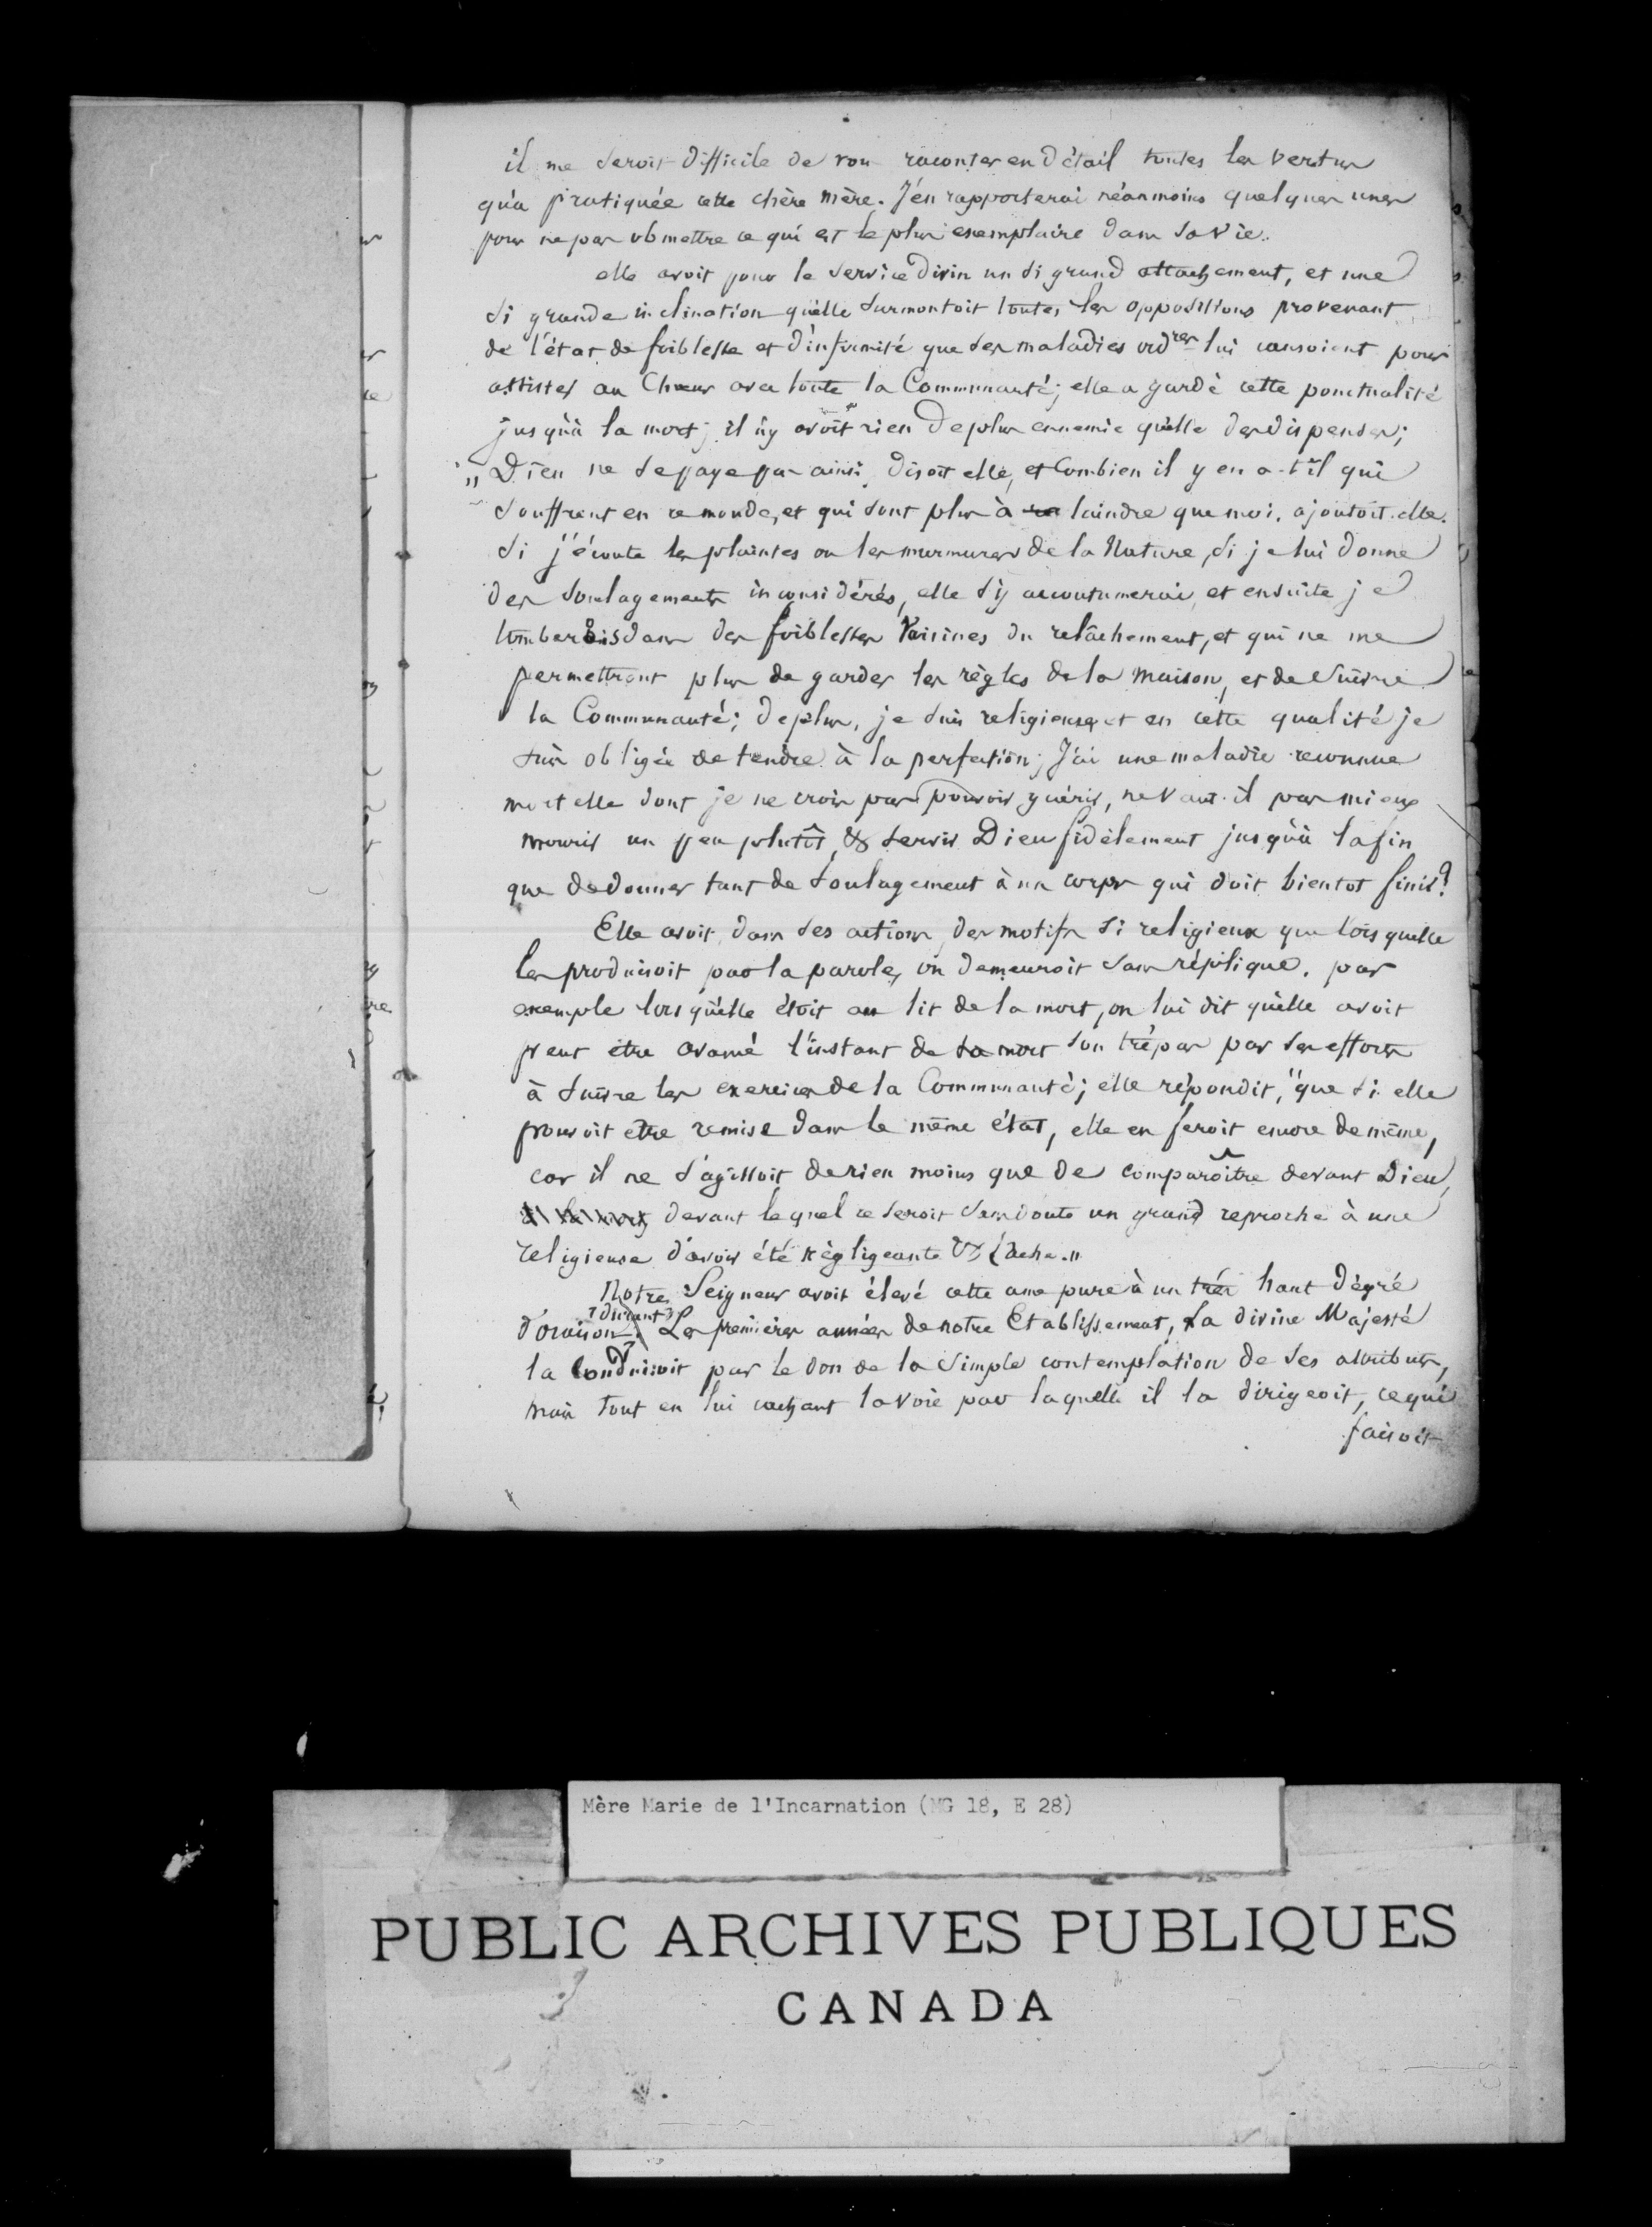 il me seroit difficile de vous raconter en détail toutes les vertus
qu'a pratiquée cette chère mère. J'en rapporterai néanmoins quelques unes
pour ne pas obmettre ce qui est le plus exemplaire dans sa vie.
elle avoit pour le service Divin un si grand attachement, et une
si grande inclination qu'elle surmontoit toutes les oppositions provenant
de l'état de foiblesse et d'infirmité que ses maladies ordres lui causoient pour
assister au Chœur avec toute la Communauté; elle a gardé cette ponctualité
jusqu'à la mort; il n'y avoit rien de plus ennemie qu'elle des dispenses;
„ Dieu ne se paye pas ainsi, disoit elle, et Combien il y en a-t-il qui
souffrent en ce monde, et qui sont plus à laindre que moi, ajoutoit-elle.
si j'écoute les plaintes ou les murmures de la Nature, si je lui donne
des soulagements inconsidérés, elle s'y accoutumerai, et ensuite je
tomberois dans des foiblesses voisines du relâchement, et qui ne me
permettront plus de garder les règles de la maison, et de suivre
la Communauté; de plus, je suis religieuse, et en cette qualité je
suis obligée de tendre à la perfection; J'ai une maladie reconnue
mortelle dont je ne crois pas pouvoir guérir, ne vaut-il pas mieux
mourir un peu plutôt, & servir Dieu fidèlement jusqu'à la fin
que de donner tant de soulagement à un corps qui doit bientot finir?
Elle avoit dans ses actions des motifs si religieux que lorsquelle
les produisoit par la parole, on demeuroit sans réplique. par
exemple lors qu'elle étoit au lit de la mort, on lui dit qu'elle avoit
peut être avancé l'instant de sa mort son trépas par ses efforts
à suivre les exercices de la Communauté; elle répondit, "que si elle
pouvoit etre remise dans le même état, elle en feroit encore de même,
car il ne s'agissoit de rien moins que de comparoître devant Dieu,
devant lequel ce seroit sans doute un grand reproche à une
religieuse d'avoir été négligeante & lache. „
Notre Seigneur avoit élevé cette ame pure à un très haut dégré
durant
d'oraison. Les premières années de notre Etablissement, La divine Majesté
la Conduisoit par le don de la simple contemplation de ses attributs,
mais tout en lui cachant la voie par laquelle il la dirigeoit, ce qui
faisoit
Mère Marie de l'Incarnation (MG 18, E 28)
PUBLIC ARCHIVES PUBLIQUES
CANADA